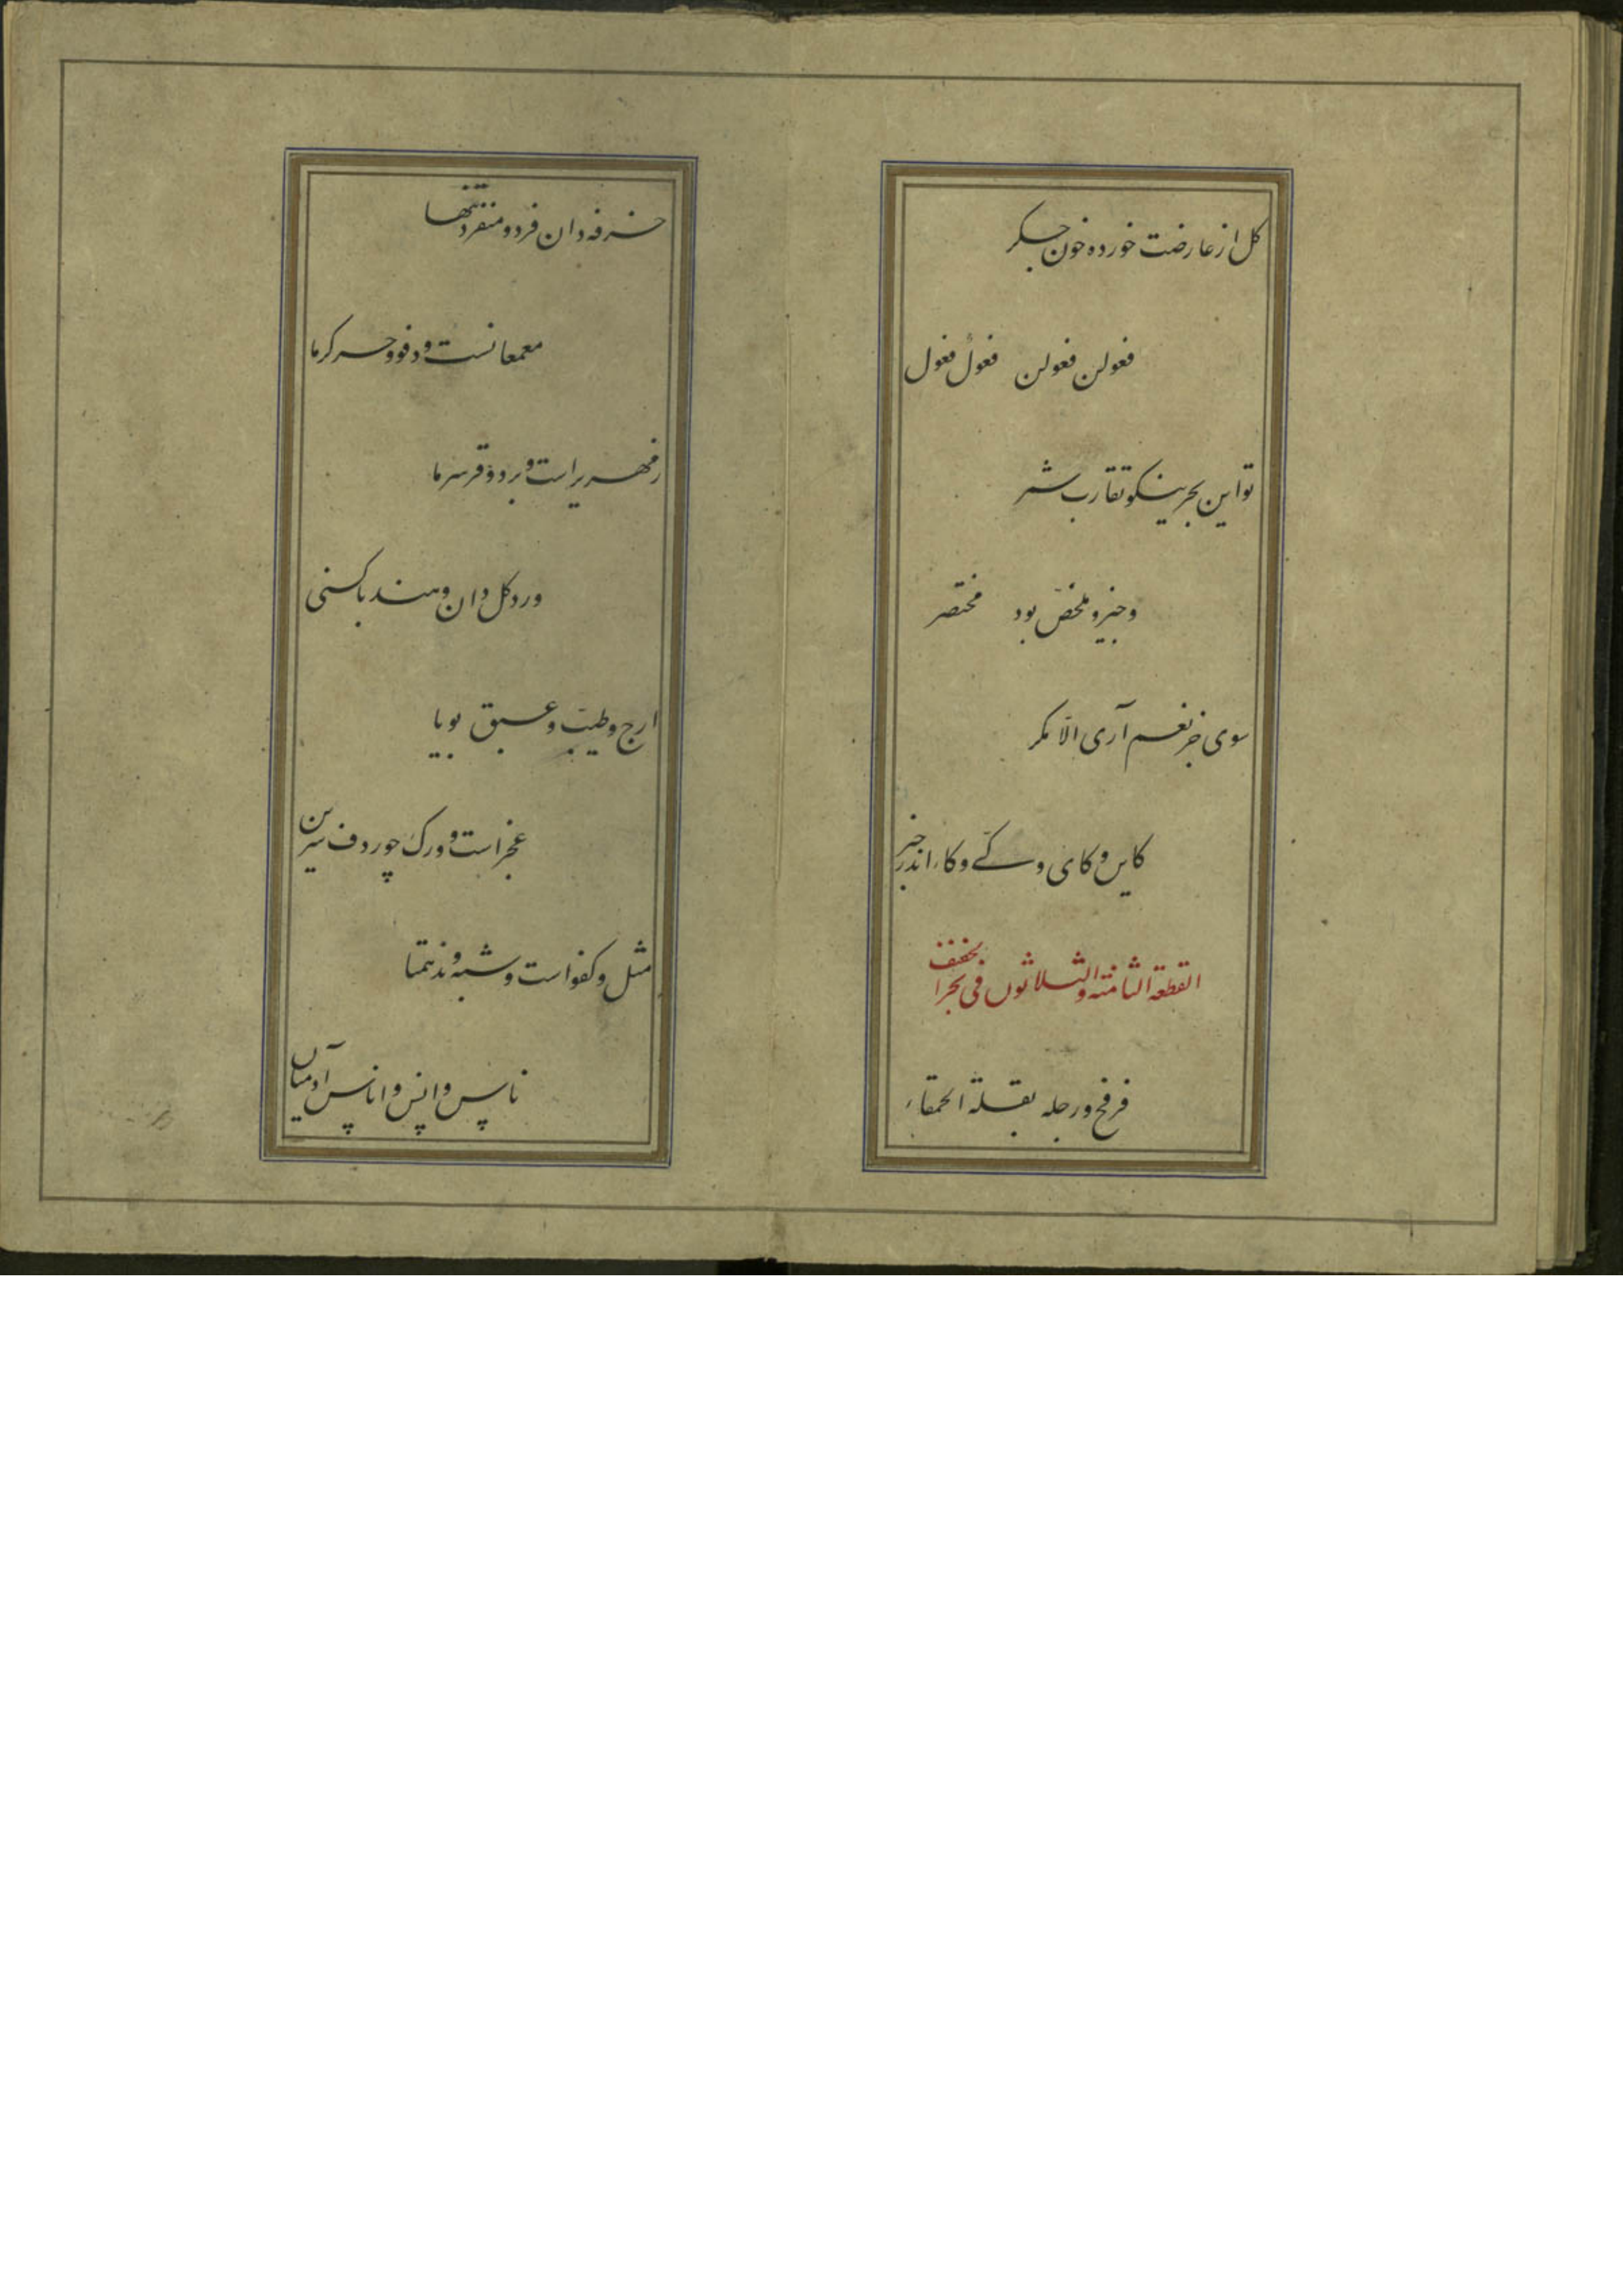 گل از عارضت خورده خون جگر
فعولن فعولن فعولُ فعول
تو این بحر نیکو تقارب شمر
وجیز و ملخّص بود مختصر
سوی جز نعم آری الّا مگر
کاین و کای و کے وکاء اندر خبر
القطعة الثامنة والثلاثون فی بحر الخفیف
فرفخ و رجله بقلة الحمقاء
خرفه دان فرد و منفرد تنها
معمعانست و دفو و حر گرما
زمهریر است و برد و قر سرما
ورد گل دان و هندبا کسنی
ارج و طیّب و عبق بویا
عجز است و ورک چو ردف سرین
مثل و کفو است و شبه و ند همتا
ناس و انس و اناس آدمیان